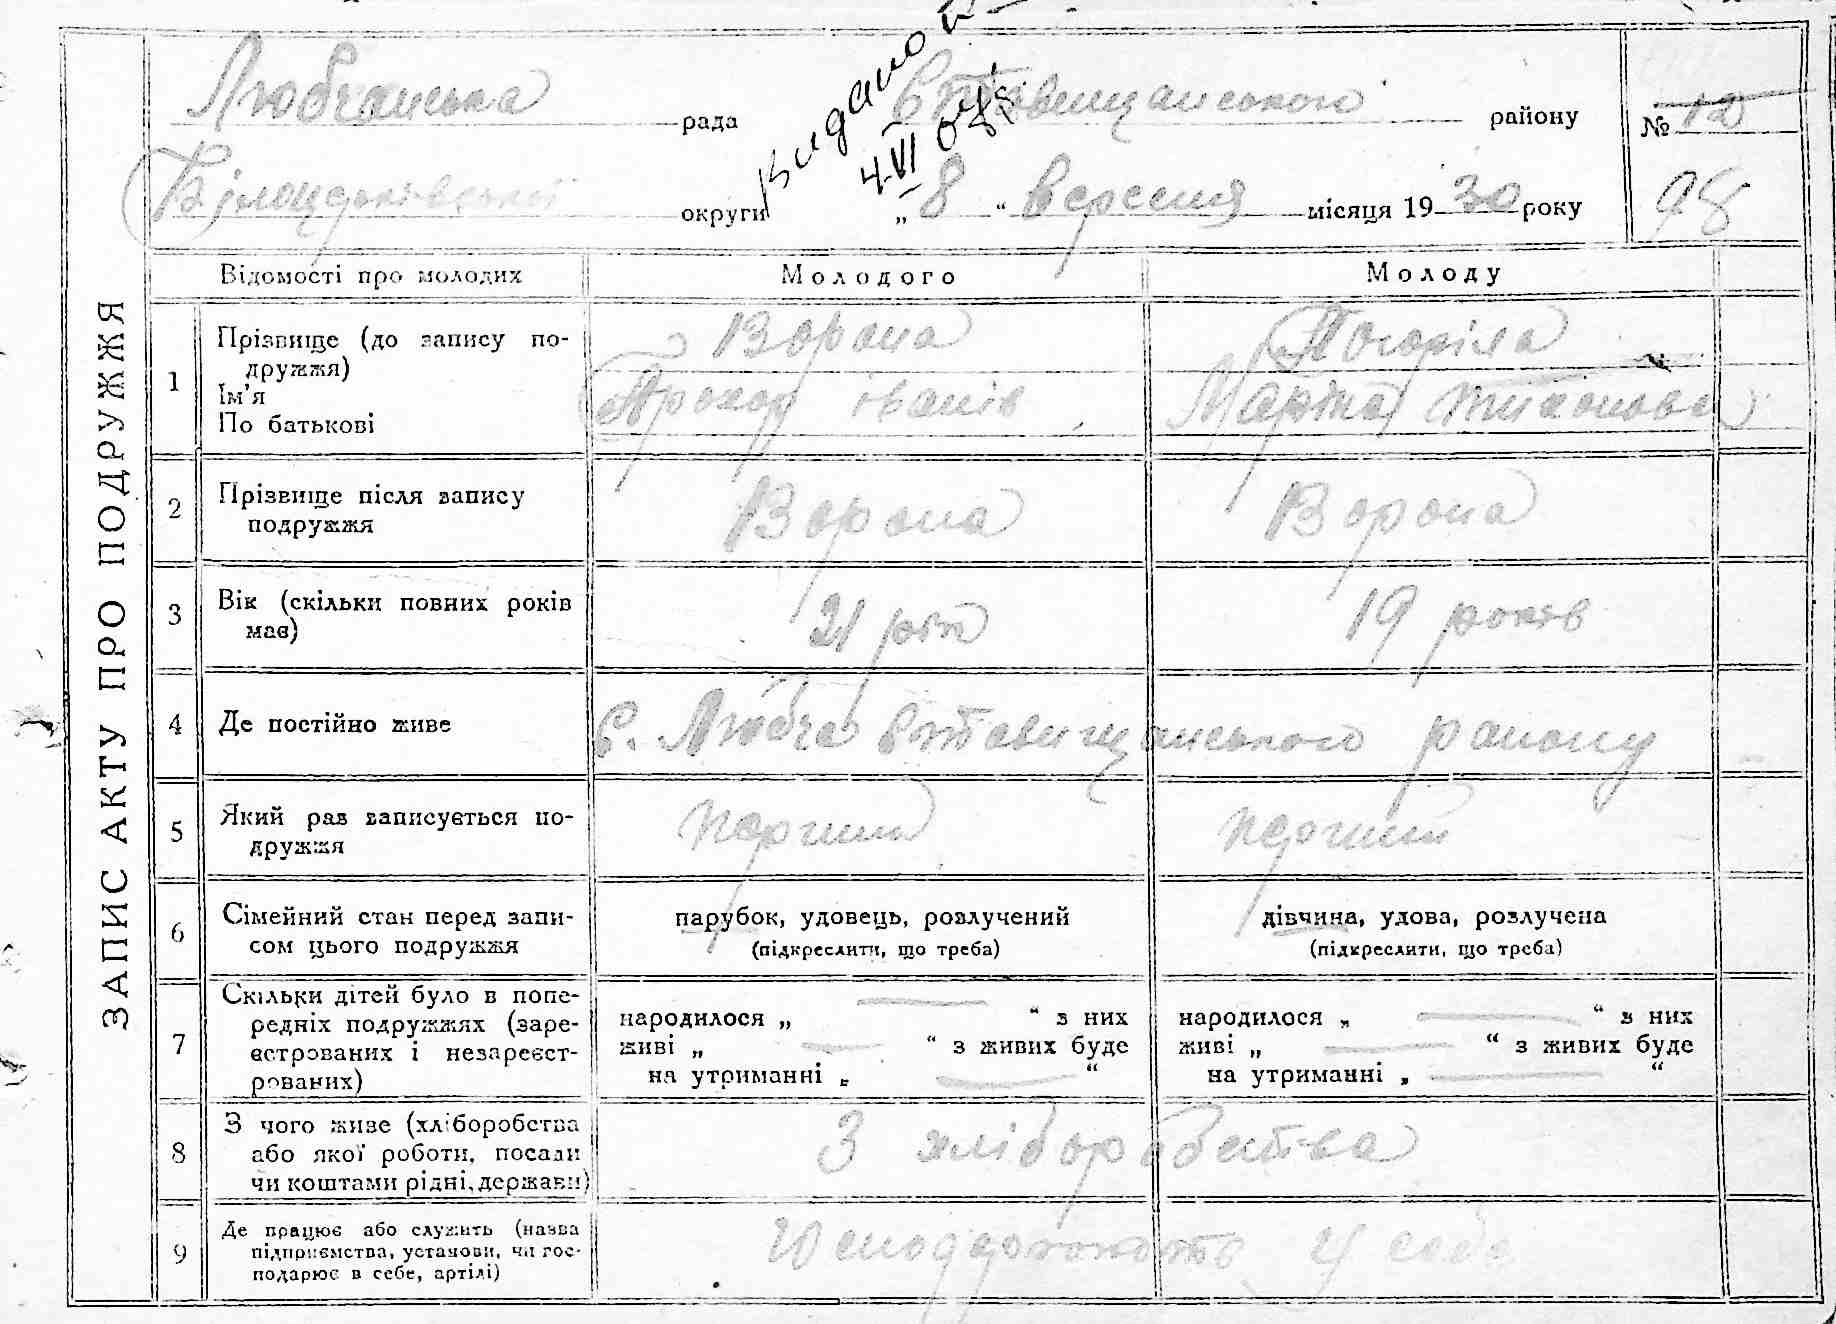 Видано
4.VI
Любчанська рада Ставищанського району № 12
Білоцерківської округи „8“ вересня місяця 1930 року 98
ЗАПИС АКТУ ПРО ПОДРУЖЖЯ
Відомості про молодих Молодого Молоду
1 Прізвище (до запису по-
дружжя)
Ім'я
По батькові
Ворона Погоріла
Прохор іванів Марта тихонова
2 Прізвище після запису
подружжя
Ворона Ворона
3 Вік (скільки повних років
має)
21 рік 19 років
4 Де постійно живе с. Любча Ставищанського району
5 Який раз записується по-
дружжя
перший перший
6 Сімейний стан перед запи-
сом цього подружжя
парубок, удовець, розлучений
(підкреслити, що треба)
дівчина, удова, розлучена
(підкреслити, що треба)
7 Скільки дітей було в попе-
редніх подружжях (заре-
єстрованих і незареєст-
рованих)
народилося „ — “ з них
живі „ — “ з живих буде
на утриманні „ — “
народилося „ — “ з них
живі „ — “ з живих буде
на утриманні „ — “
8 З чого живе (хліборобства
або якої роботи, посади
чи коштами рідні, держави)
З хліборобства
9 Де працює або служить (назва
підприємства, установи, чи гос-
подарює в себе, артілі)
у себе